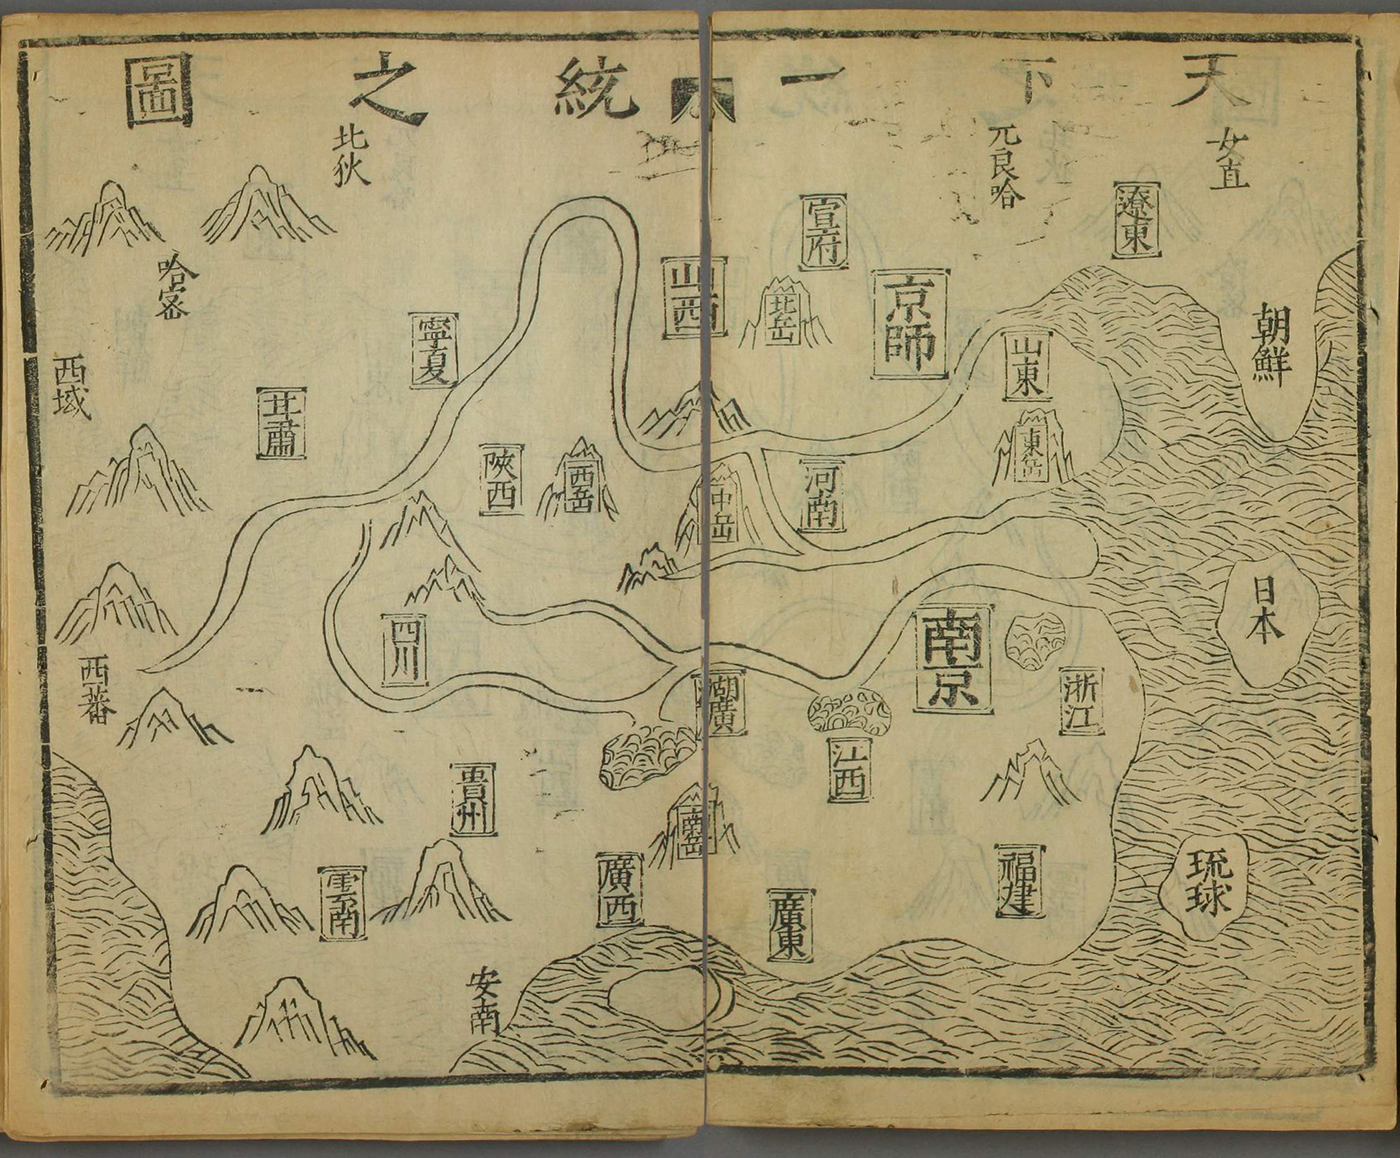 天下一統之圖
女直
遼東
兀良哈
朝鮮
京師
宣府
北岳
山東
東岳
河南
日本
南京
浙江
江西
琉球
福建
廣東
北狄
山西
哈密
寧夏
西域
甘肅
陝西
西岳
中岳
四川
西蕃
湖廣
貴州
南岳
雲南
廣西
安南